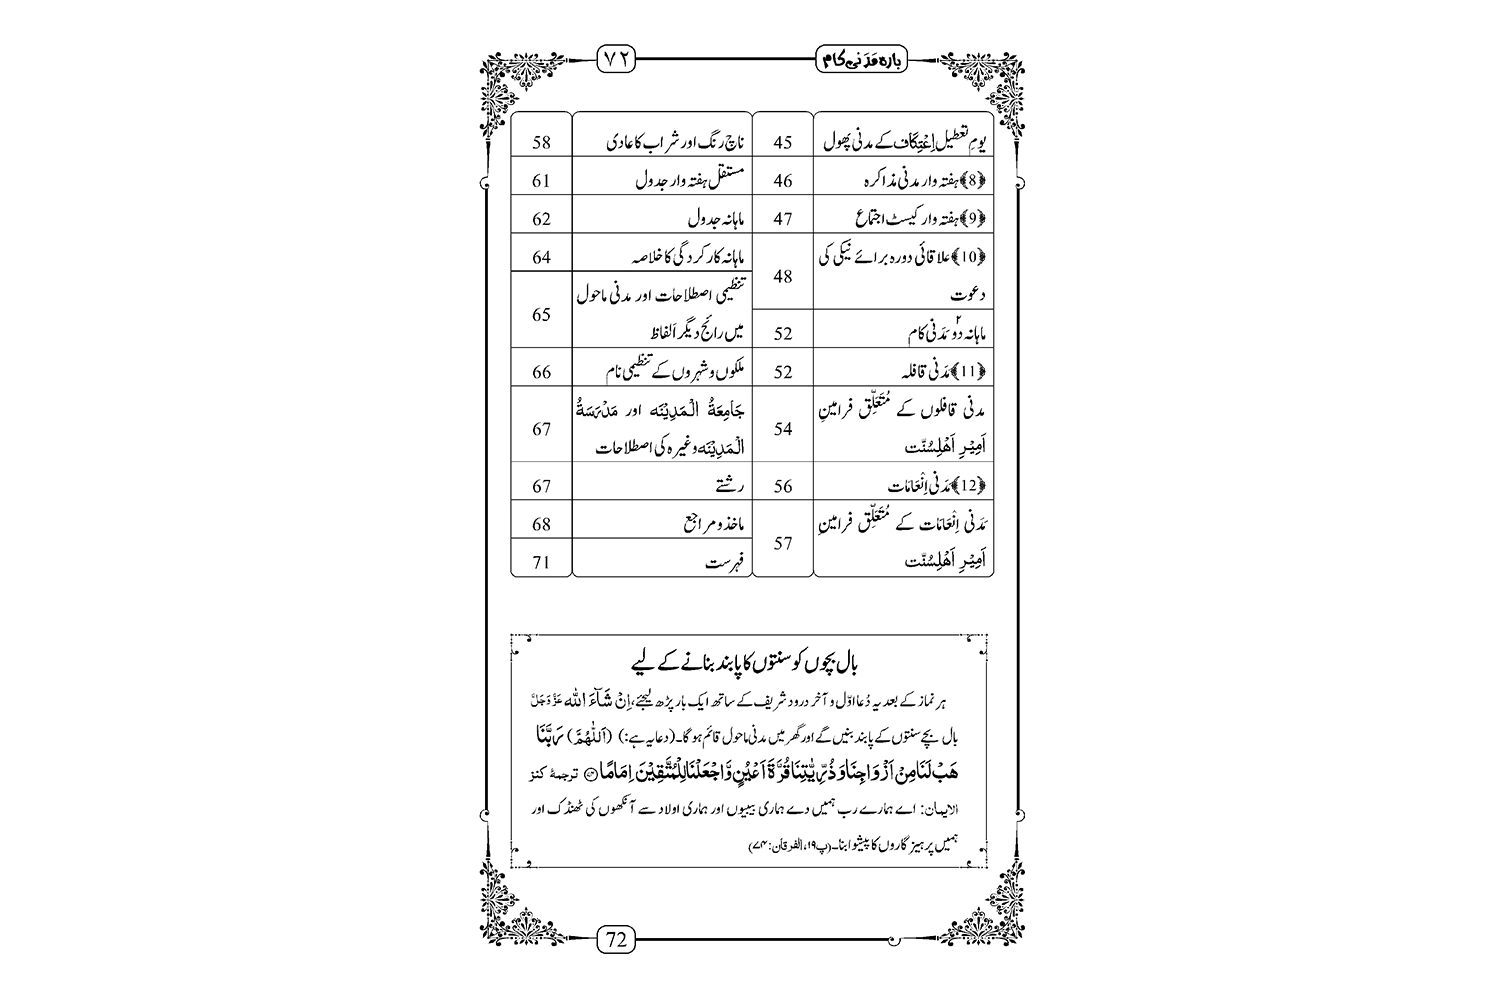 باره مَدَنی کام
۷۲
یومِ تعطیل اِعْتِکَاف کے مدنی پھول 45
﴿8﴾ ہفتہ وار مدنی مذاکرہ 46
﴿9﴾ ہفتہ وار کیسٹ اجتماع 47
﴿10﴾ علاقائی دورہ برائے نیکی کی
دعوت 48
ماہانہ دو۲ مَدَنی کام 52
﴿11﴾ مَدَنی قافلہ 52
مدنی قافلوں کے مُتَعَلِّق فرامینِ
اَمِیْرِ اَهْلِسُنَّت 54
﴿12﴾ مَدَنی اِنْعَامَات 56
مَدَنی اِنْعَامَات کے مُتَعَلِّق فرامینِ
اَمِیْرِ اَهْلِسُنَّت 57
ناچ رنگ اور شراب کا عادی 58
مستقل ہفتہ وار جدول 61
ماہانہ جدول 62
ماہانہ کارکردگی کا خلاصہ 64
تنظیمی اصطلاحات اور مدنی ماحول
میں رائج دیگر اَلفاظ 65
ملکوں و شہروں کے تنظیمی نام 66
جَامِعَةُ الْمَدِیْنَه اور مَدْرَسَةُ
الْمَدِیْنَه وغیرہ کی اصطلاحات 67
رشتے 67
ماخذ و مراجع 68
فہرست 71
بال بچوں کو سنتوں کا پابند بنانے کے لیے
ہر نماز کے بعد یہ دُعا اوّل و آخر درود شریف کے ساتھ ایک بار پڑھ لیجئے، اِنْ شَآءَ اللّٰه عَزَّوَجَلَّ
بال بچے سنتوں کے پابند بنیں گے اور گھر میں مدنی ماحول قائم ہو گا۔ (دعا یہ ہے:) (اَللّٰهُمَّ) رَبَّنَا
هَبْ لَنَا مِنْ اَزْوَاجِنَا وَذُرِّیّٰتِنَا قُرَّةَ اَعْیُنٍ وَّاجْعَلْنَا لِلْمُتَّقِیْنَ اِمَامًا ۝۷۴ ترجمۂ کنز
الایمان: اے ہمارے رب ہمیں دے ہماری بیبیوں اور ہماری اولاد سے آنکھوں کی ٹھنڈک اور
ہمیں پرہیزگاروں کا پیشوا بنا۔ (پ۱۹، الفرقان: ۷۴)
72